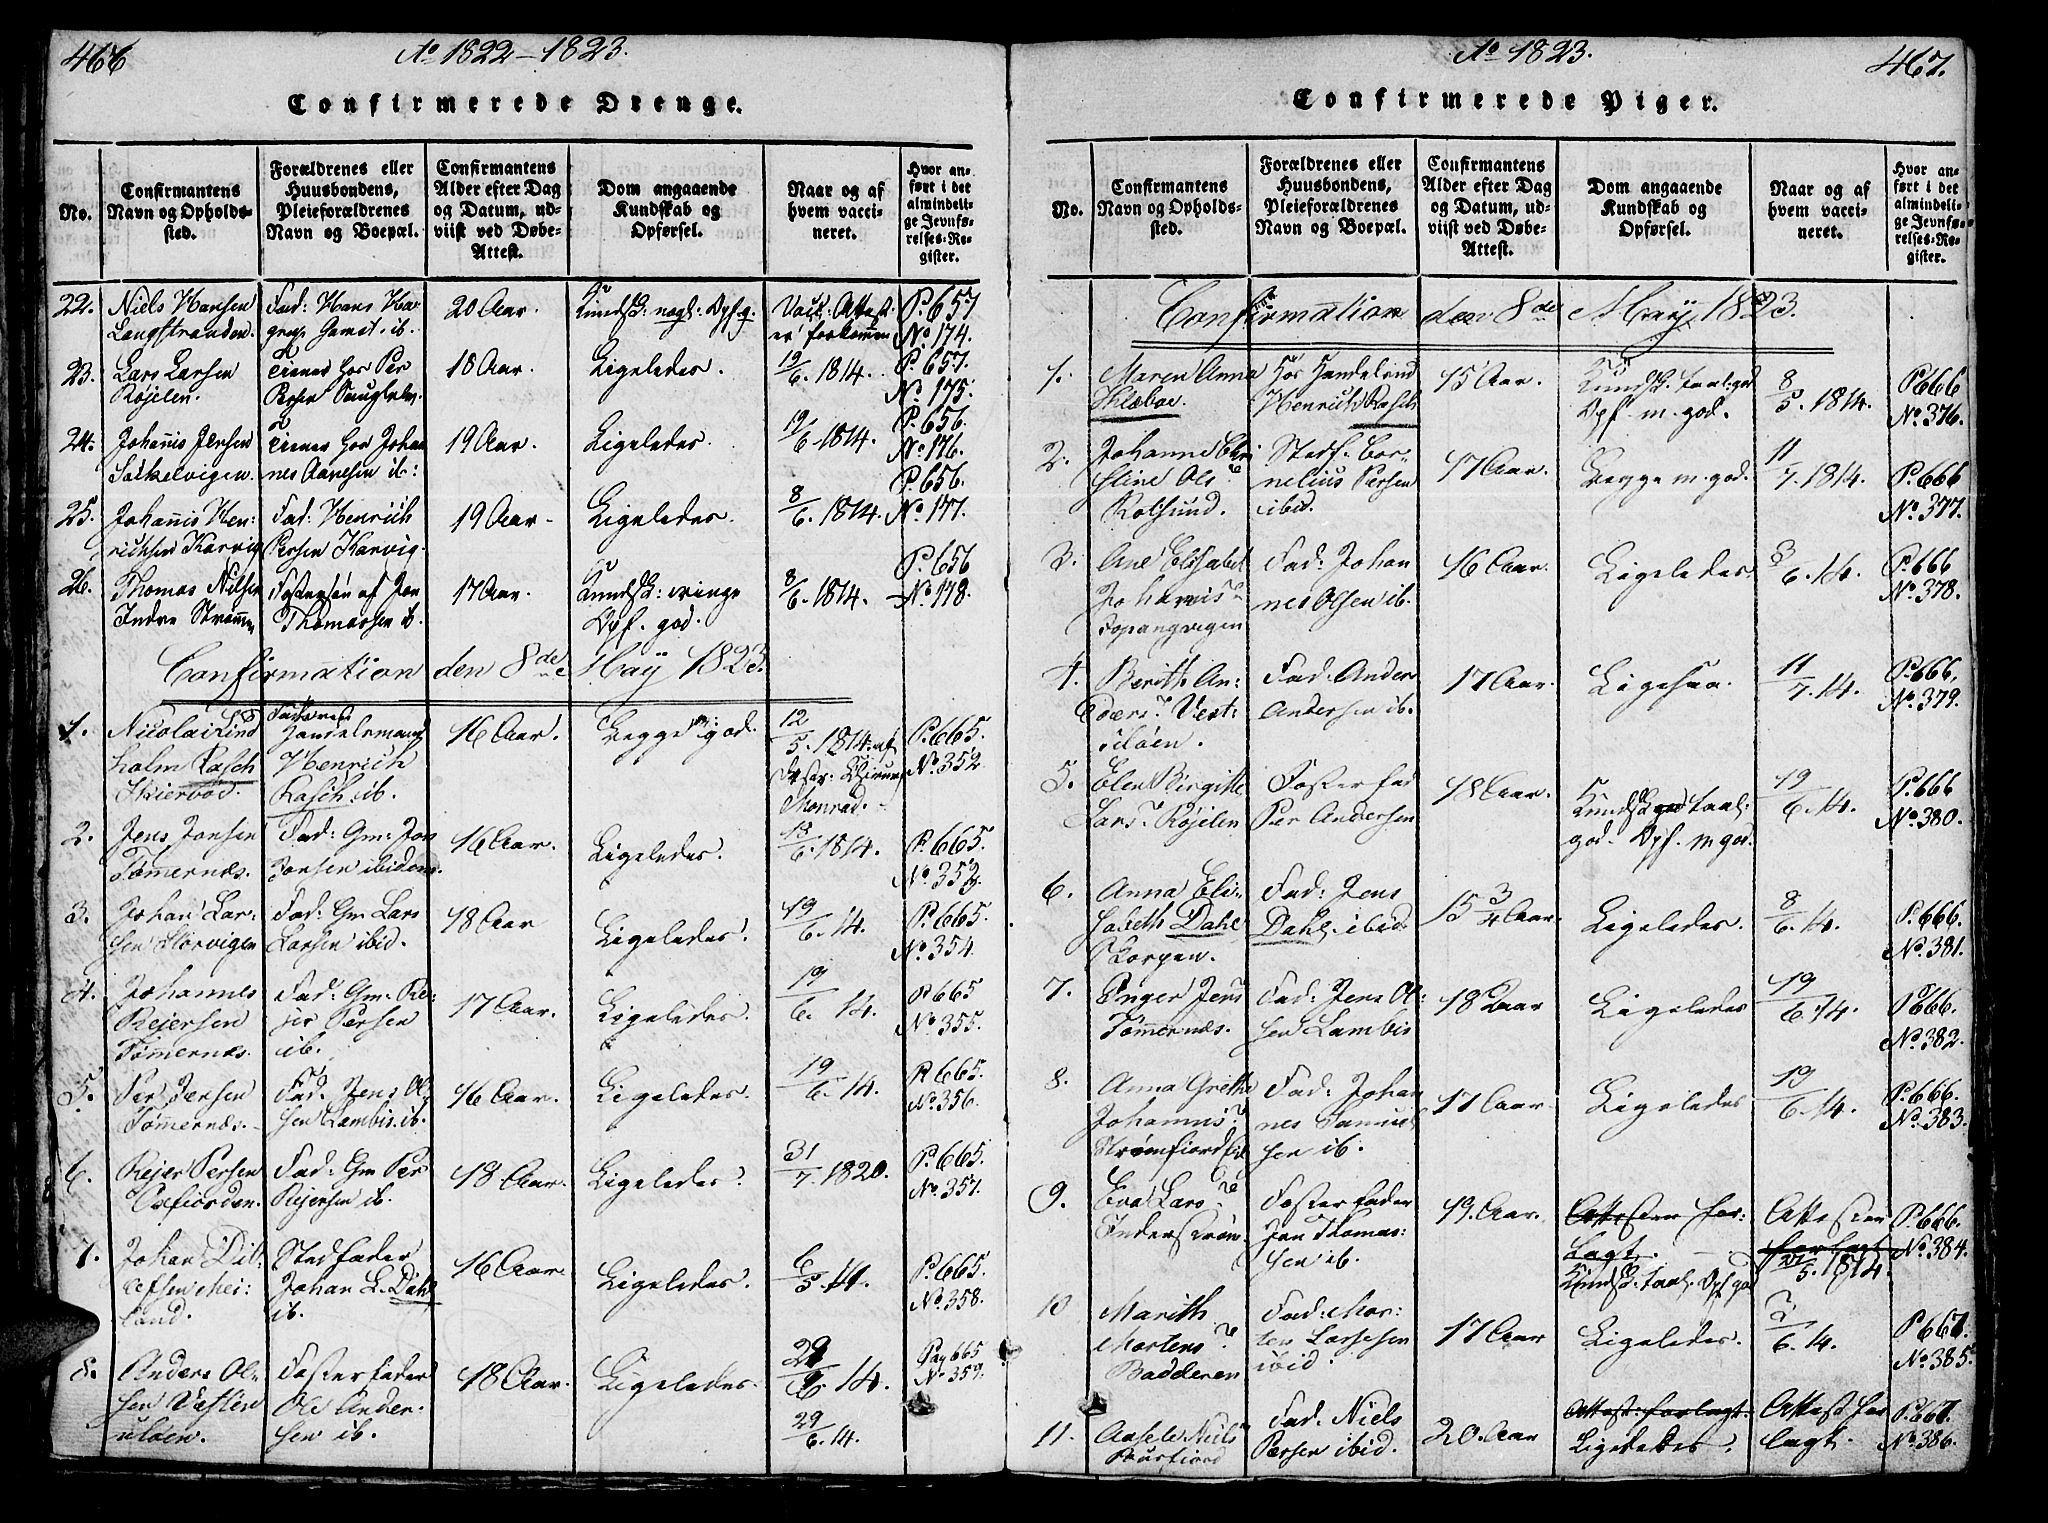 466
Ao 1822-1823.
Confirmerede Drenge.
No.
Confirmantens Navn og Opholds-sted.
Forældrenes eller Huusbondens, Pleieforældrenes Navn og Boepæl.
Confirmantens Alder efter Dag og Datum, ud-viist ved Døbe-Attest.
Dom angaaende Kundskab og Opførsel.
Naar og af hvem vacci-neret.
Hvor an-ført i det almindeli-ge Jevnfø-relses-Re-gister.
22. Niels Hansen Langstranden. Fad: Hans Ha- ib. 20 Aar. Kundsk: nogl. Opf. g. Vacc: Attest er forkommen P. 657 No. 174.
23. Lars Larsen Røjelen. Tienes hos Per Persen 18 Aar. Ligeledes. 19/6. 1814. P. 657. No. 175.
24. Johanis Jensen Tienes hos Johannes ib: 19 Aar. Ligeledes. 19/6 1814. P. 656. No. 176.
25. Johanis Henrichsen Karvig Fad: Henrich Persen Karvig. 19 Aar. Ligeledes. 8/6. 1814. P. 656. No. 177.
26. Thomas Nilsen Indre Strømmen Fostersøn af Jon Thomassen ib. 17 Aar. Kundsk: ringe Opf. god. 8/6. 1814. P. 656 No. 178.
Confirmation den 8de May 1823.
1. Nicolai Lindholm Rasch Skiervøe. Handelsmand Henrich Rasch ib. 16 Aar. Begge god. 12/5. 1814. af Monrad. P. 665. No. 352
2. Jens Jonsen Tømernæs. Fad: Gm: Jon Jonsen ibidem. 16 Aar. Ligeledes. 13/6. 1814. P. 665. No. 353.
3. Johan Larsen Storvigen Fad: Gm Lars Larsen ibid. 18 Aar Ligeledes. 19/6. 14. P. 665. No. 354.
4. Johannes Rejersen Tømernæs. Fad: Gm: Rejer Persen ib. 17 Aar. Ligeledes. 19/6. 14. P. 665 No. 355.
5. Per Jensen Tømernæs. Fad: Jens Olsen Lambis ib. 16 Aar. Ligeledes. 19/6. 14. P. 665. No. 356.
6. Rejer Persen Oxfiorden. Fad: Gm Per Rejersen ib. 18 Aar. Ligeledes. 31/7. 1820. P. 665. No. 357.
7. Johan Meiland. Stedfader Johan L. Dahl ib. 16 Aar Ligeledes. 6/5. 14. P. 665. No. 358.
8. Anders Olsen Fosterfader Ole Andersen ib. 18 Aar. Ligeledes. 29/6. 14. 29/6. 14. Pag 665 No 359.
Ao 1823.
467.
Confirmerede Piger.
No.
Confirmantens Navn og Opholds-sted.
Forældrenes eller Huusbondens, Pleieforældrenes Navn og Boepæl.
Confirmantens Alder efter Dag og Datum, ud-viist ved Døbe-Attest.
Dom angaaende Kundskab og Opførsel.
Naar og af hvem vacci-neret.
Hvor an-ført i det almindeli-ge Jevnfø-relses-Re-gister.
Confirmation den 8de May 1823.
1. Maren Anna Klæboe. Hos Handelsmd Henrich Rasch 15 Aar. Kundsk. taal: god Opf. m. god. 8/5. 1814. P. 666 No. 376.
2. Johanne Christine Ols: Kolsund. Stedf. Cornelius Persen ibid. 17 Aar. Begge m. god. 11/7. 1814. P. 666 No. 377.
3. Ane Elisabet Johannis Fad: Johannes Olsen ib. 16 Aar. Ligeledes. 6. 14. P. 666 No. 378.
4. Berith Anders: Fad: Anders Andersen ib. 17 Aar. Ligesaa. 11/7. 14. P. 666. No. 379.
5. Elen Birgitte Lars: Røjelen Fosterfad Per Andersen 18 Aar. Kundsk taal: god. Opf. m god. 19/6. 14. P. 666 No. 380.
6. Anna Elisabeth Dahl Skorpen. Fad: Jens Dahl, ibid. 15 3/4 Aar. Ligeledes. 8/6. 14. P. 666. No. 381.
7. Inger Jens Tømernæs. Fad: Jens Olsen Lambis 18 Aar Ligeledes 19/6. 14. P. 666. No. 382.
8. Anna Grethe Johannis: Strømfiord Fad: Johannes Samuelsen ib. 17 Aar. Ligeledes 19/6. 14. P. 666. No. 383.
9. Eva Lars: Inderstrøm. Fosterfader Jon Thomassen ib. 19. Aar. Attesten forlagt. Kundsk. taal. Opf god Attesten forlagt 5. 1814. P. 666. No. 384.
10 Marith Mortens: Badderen Fad: Morten Larsesen ibid. 17 Aar Ligeledes. 7/6. 14. P. 667. No. 385.
11. Niels Fad: Niels Persen ibid. 20. Aar Attest: forlagt. Ligeledes. Attest forlagt. P. 667. No. 386.